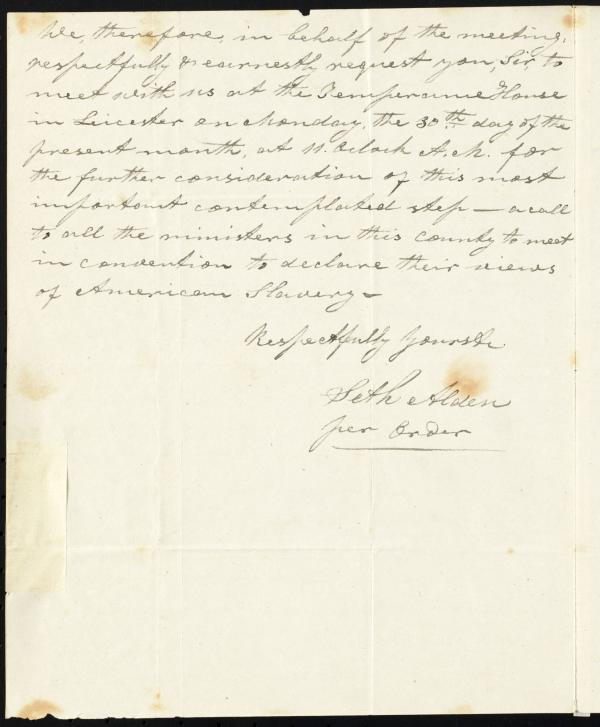 We, therefore, in behalf of the meeting,
respectfully & earnestly request you, Sir, to
meet with us at the Temperance House
in Leicester on Monday, the 30th day of the
present month, at 11. Oclock A.M. for
the further consideration of this most
important contemplated step — a call
to all the ministers in this county to meet
in convention to declare their views
of American Slavery —
Respectfully Yours &c
Seth Alden
per Order